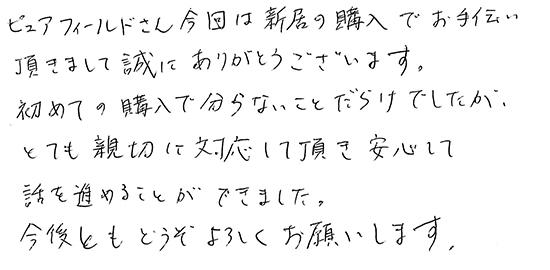 ピュアフィールドさん今回は新居の購入でお手伝い
頂きまして誠にありがとうございます。
初めての購入で分らないことだらけでしたが、
とても親切に対応して頂き安心して
話を進めることができました。
今後ともどうぞよろしくお願いします。